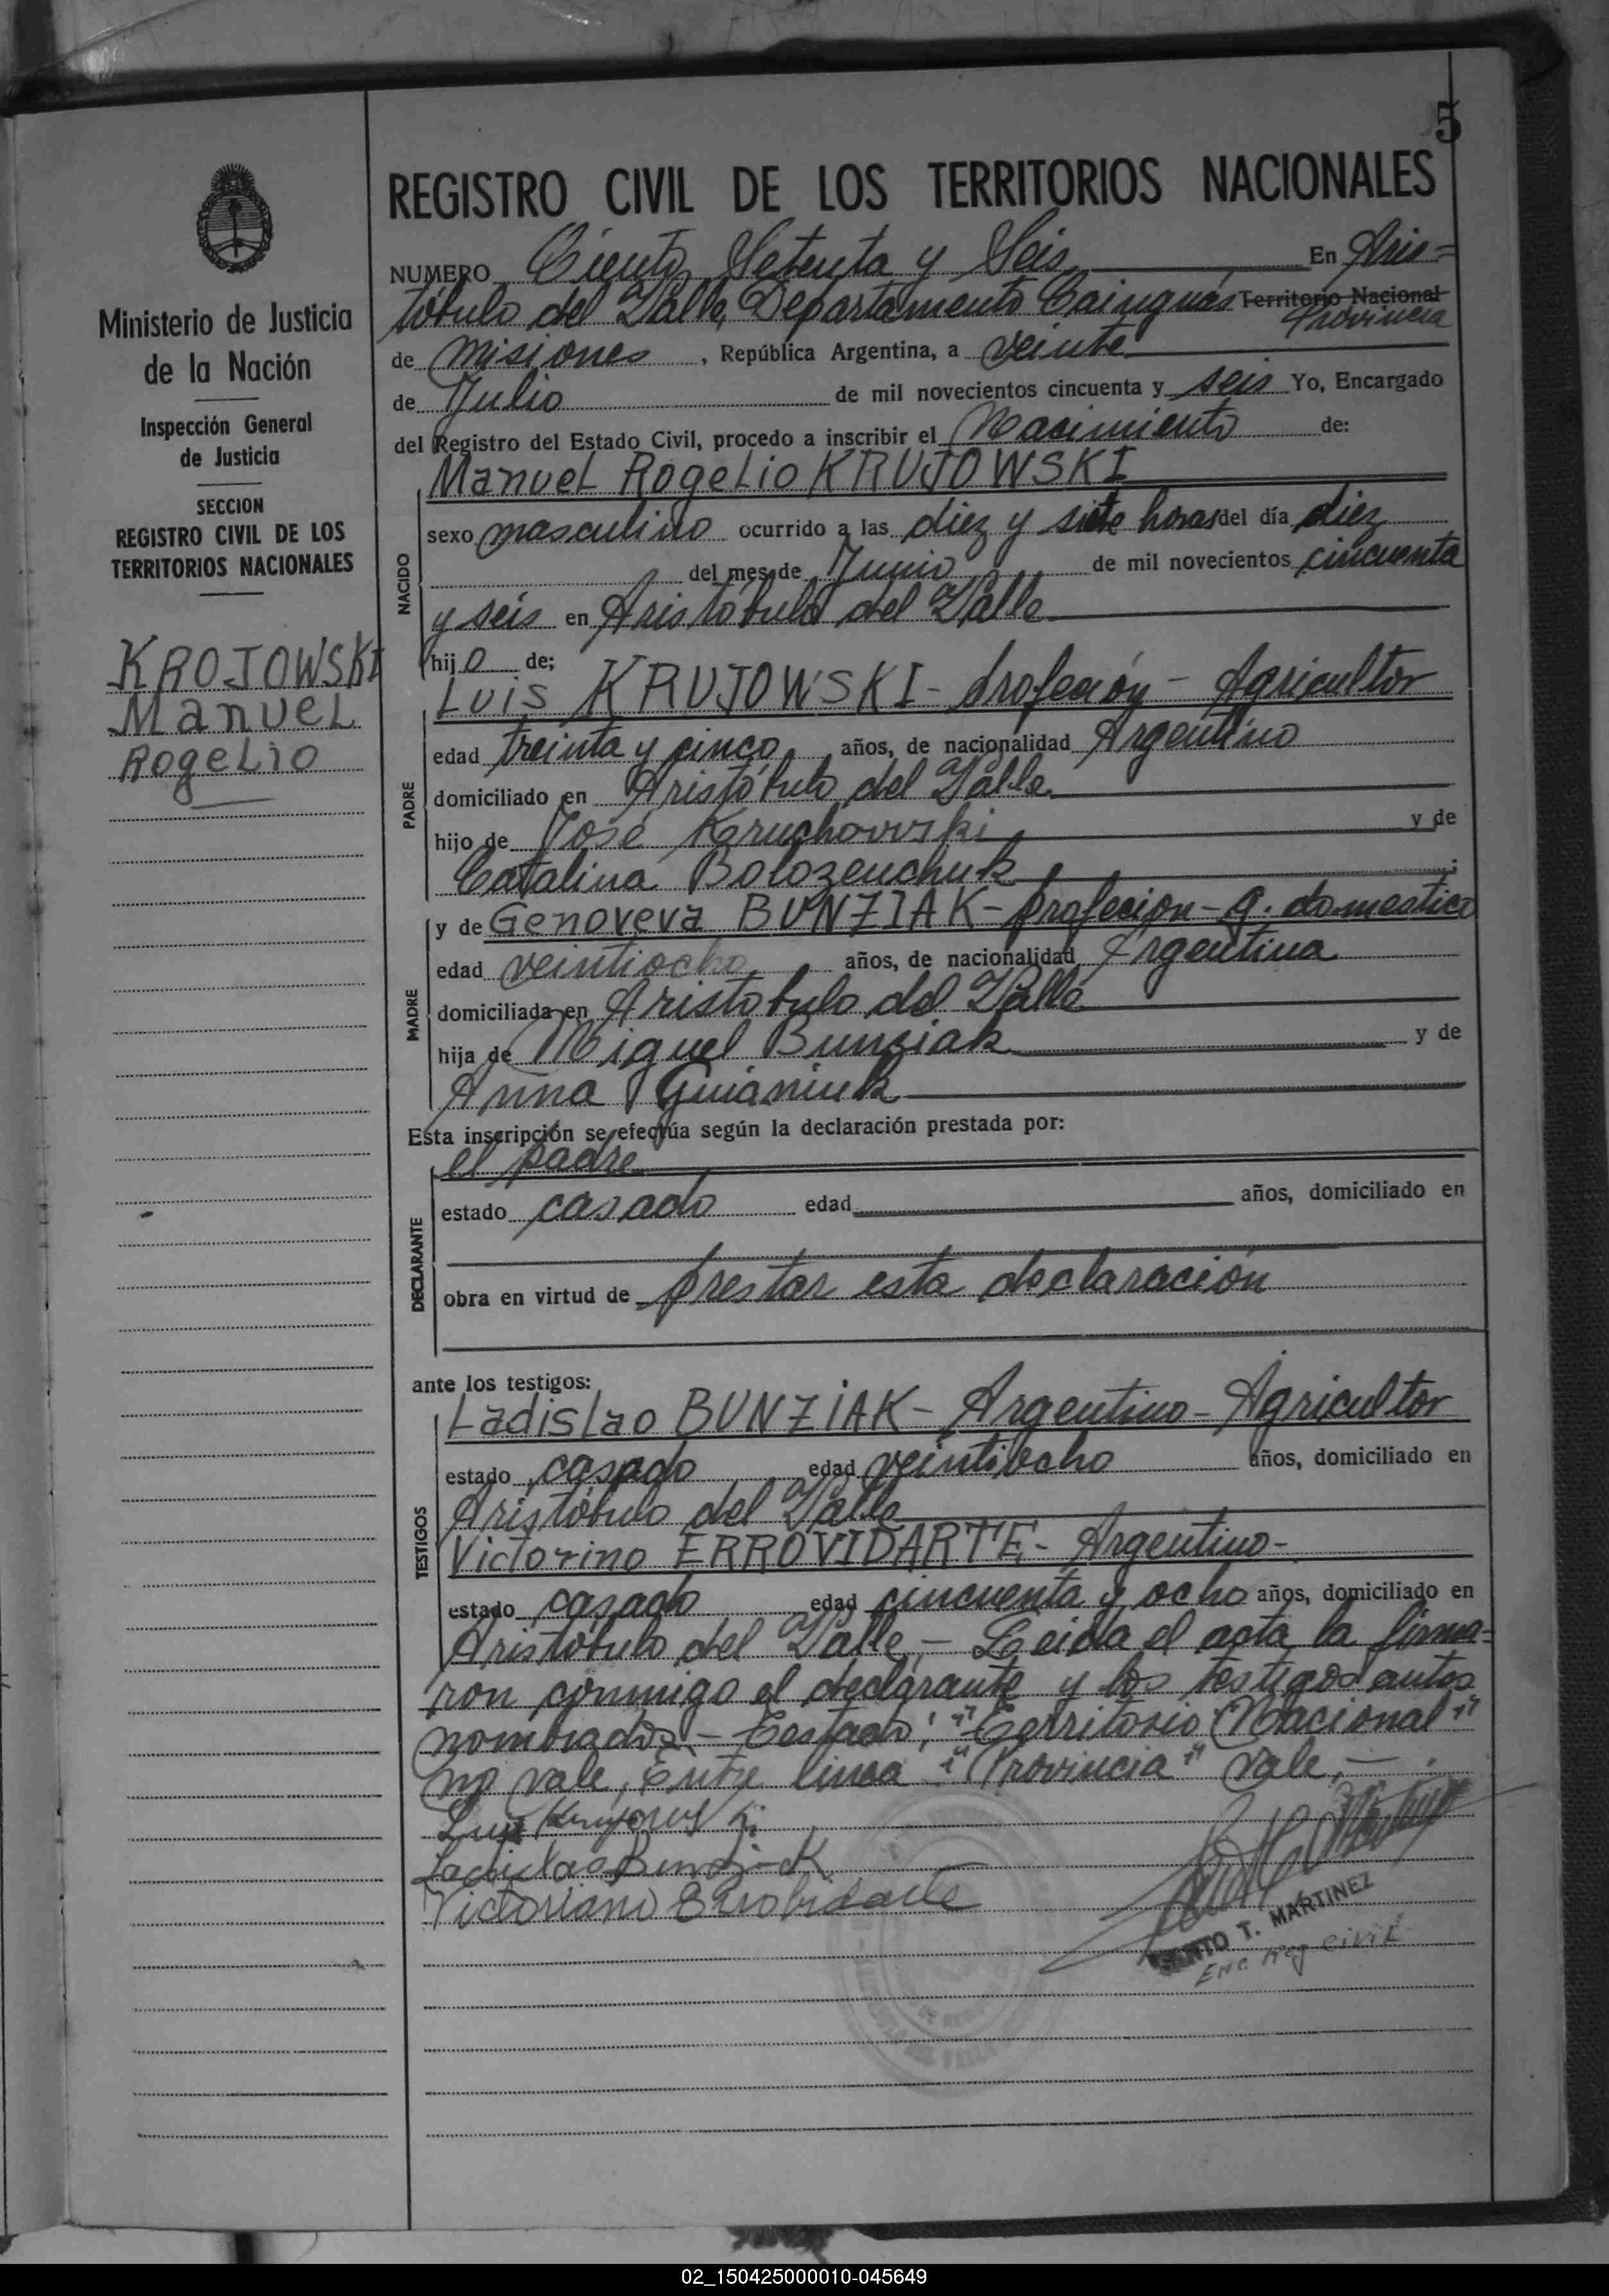 5
REGISTRO CIVIL DE LOS TERRITORIOS NACIONALES
Ministerio de Justicia
de la Nación
Inspección General
de Justicia
SECCION
REGISTRO CIVIL DE LOS
TERRITORIOS NACIONALES
KROJOWSKI
Manuel
Rogelio
NUMERO Ciento Setenta y Seis En Aris=
tóbulo del Valle, Departamento Cainguás Territorio Nacional
Provincia
de Misiones, República Argentina, a veinte
de Julio de mil novecientos cincuenta y seis Yo, Encargado
del Registro del Estado Civil, procedo a inscribir el Nacimiento de:
NACIDO
Manuel Rogelio KRUJOWSKI
sexo masculino ocurrido a las diez y siete horas del día diez
del mes de Junio de mil novecientos cincuenta
y seis en Aristóbulo del Valle
hijo de;
PADRE
Luis KRUJOWSKI - profeción - Agricultor
edad treinta y cinco años, de nacionalidad Argentino
domiciliado en Aristóbulo del Valle
hijo de José Kruchowski y de
Catalina Bolozenchuk;
MADRE
y de Genoveva BUNZIAK - profecion - q. domestico
edad veintiocho años, de nacionalidad Argentina
domiciliada en Aristobulo del Valle
hija de Miguel Bunziak y de
Anna Guianiuk
Esta inscripción se efectúa según la declaración prestada por:
DECLARANTE
el padre
estado casado edad años, domiciliado en
obra en virtud de prestar esta declaración
ante los testigos:
TESTIGOS
Ladislao BUNZIAK - Argentino - Agricultor
estado casado edad veintiocho años, domiciliado en
Aristóbulo del Valle
Victorino ERROVIDARTE - Argentino -
estado casado edad cincuenta y ocho años, domiciliado en
Aristóbulo del Valle, - Leida el acta la firma=
ron conmigo el declarante y los testigos antes
nombrados. - Testado: "Territorio Nacional"
no vale, Entre linea: "Provincia" vale. -
Luis Krujowski
Ladislao Bunziak
Victoriano Errobidarte
T. MARTINEZ
Enc. Reg Civil
02_150425000010-045649